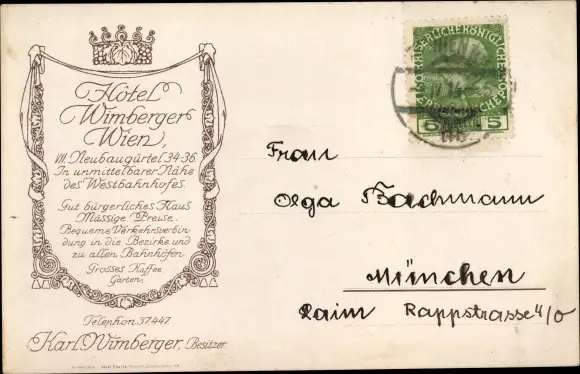 Hôtel
Wimberger
Wien,
VII. Neubaugürtel 34-36.
In unmittelbarer Nähe
des Westbahnhofes.
Gut bürgerliches Haus
Mässige Preise.
Bequeme Verkehrsverbin
dung in die Bezirke und
zu allen Bahnhöfen.
Grosses Kaffee
Garten.
Telephon 37.447.
Karl Wimberger, Besitzer
WIEN
IV 14
5 5
Frau
Olga Bachmann
München
Raim Rappstrasse 4/0